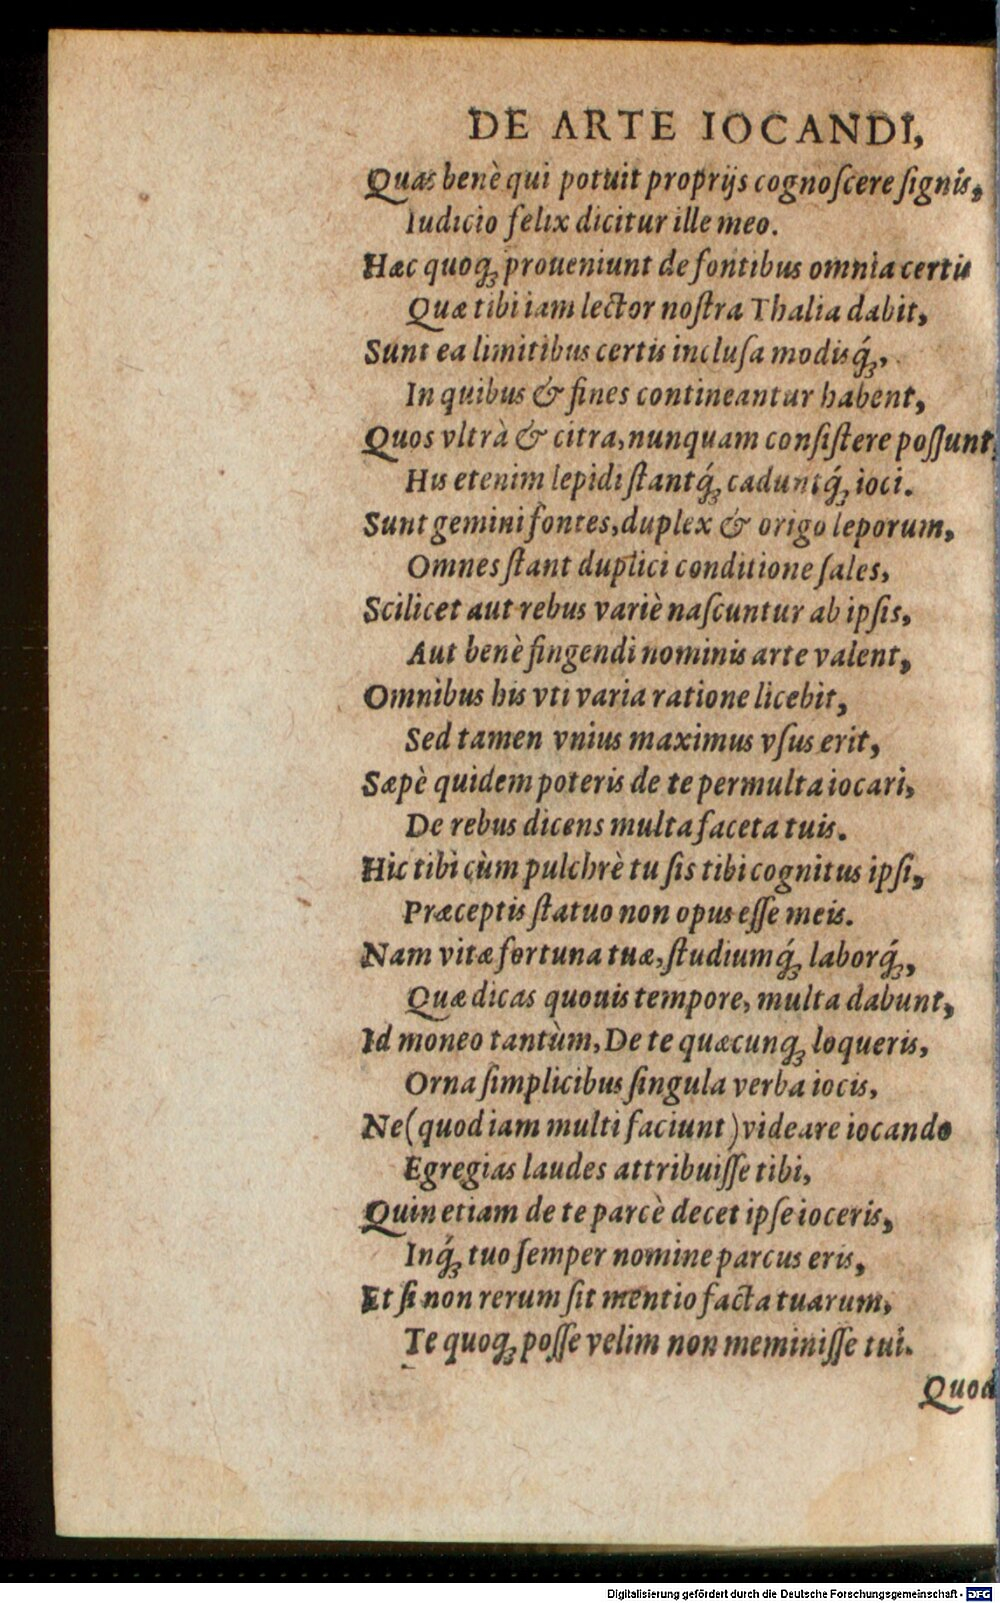 DE ARTE IOCANDI,
Quas benè qui potuit proprijs cognoſcere ſignis,
Iudicio felix dicitur ille meo.
Hæc quoq; proueniunt de fontibus omnia certis
Quæ tibi iam lector noſtra Thalia dabit,
Sunt ea limitibus certis incluſa modisq́;,
In quibus & fines contineantur habent,
Quos vltrà & citra, nunquam conſiſtere poſſunt,
His etenim lepidi ſtantq́; caduntq́; ioci.
Sunt gemini fontes, duplex & origo leporum,
Omnes ſtant duplici conditione ſales,
Scilicet aut rebus variè naſcuntur ab ipſis,
Aut benè fingendi nominis arte valent,
Omnibus his vti varia ratione licebit,
Sed tamen vnius maximus vſus erit,
Sæpè quidem poteris de te permulta iocari,
De rebus dicens multa faceta tuis.
Hic tibi cùm pulchrè tu ſis tibi cognitus ipſi,
Præceptis ſtatuo non opus eſſe meis.
Nam vitæ fortuna tuæ, ſtudiumq́; laborq́;,
Quæ dicas quouis tempore, multa dabunt,
Id moneo tantùm, De te quæcunq; loqueris,
Orna ſimplicibus ſingula verba iocis,
Ne (quod iam multi faciunt) videare iocando
Egregias laudes attribuiſſe tibi,
Quin etiam de te parcè decet ipſe ioceris,
Inq́; tuo ſemper nomine parcus eris,
Et ſi non rerum ſit mentio facta tuarum,
Te quoq; poſſe velim non meminiſſe tui.
Quod
Digitalisierung gefördert durch die Deutsche Forschungsgemeinschaft - DFG